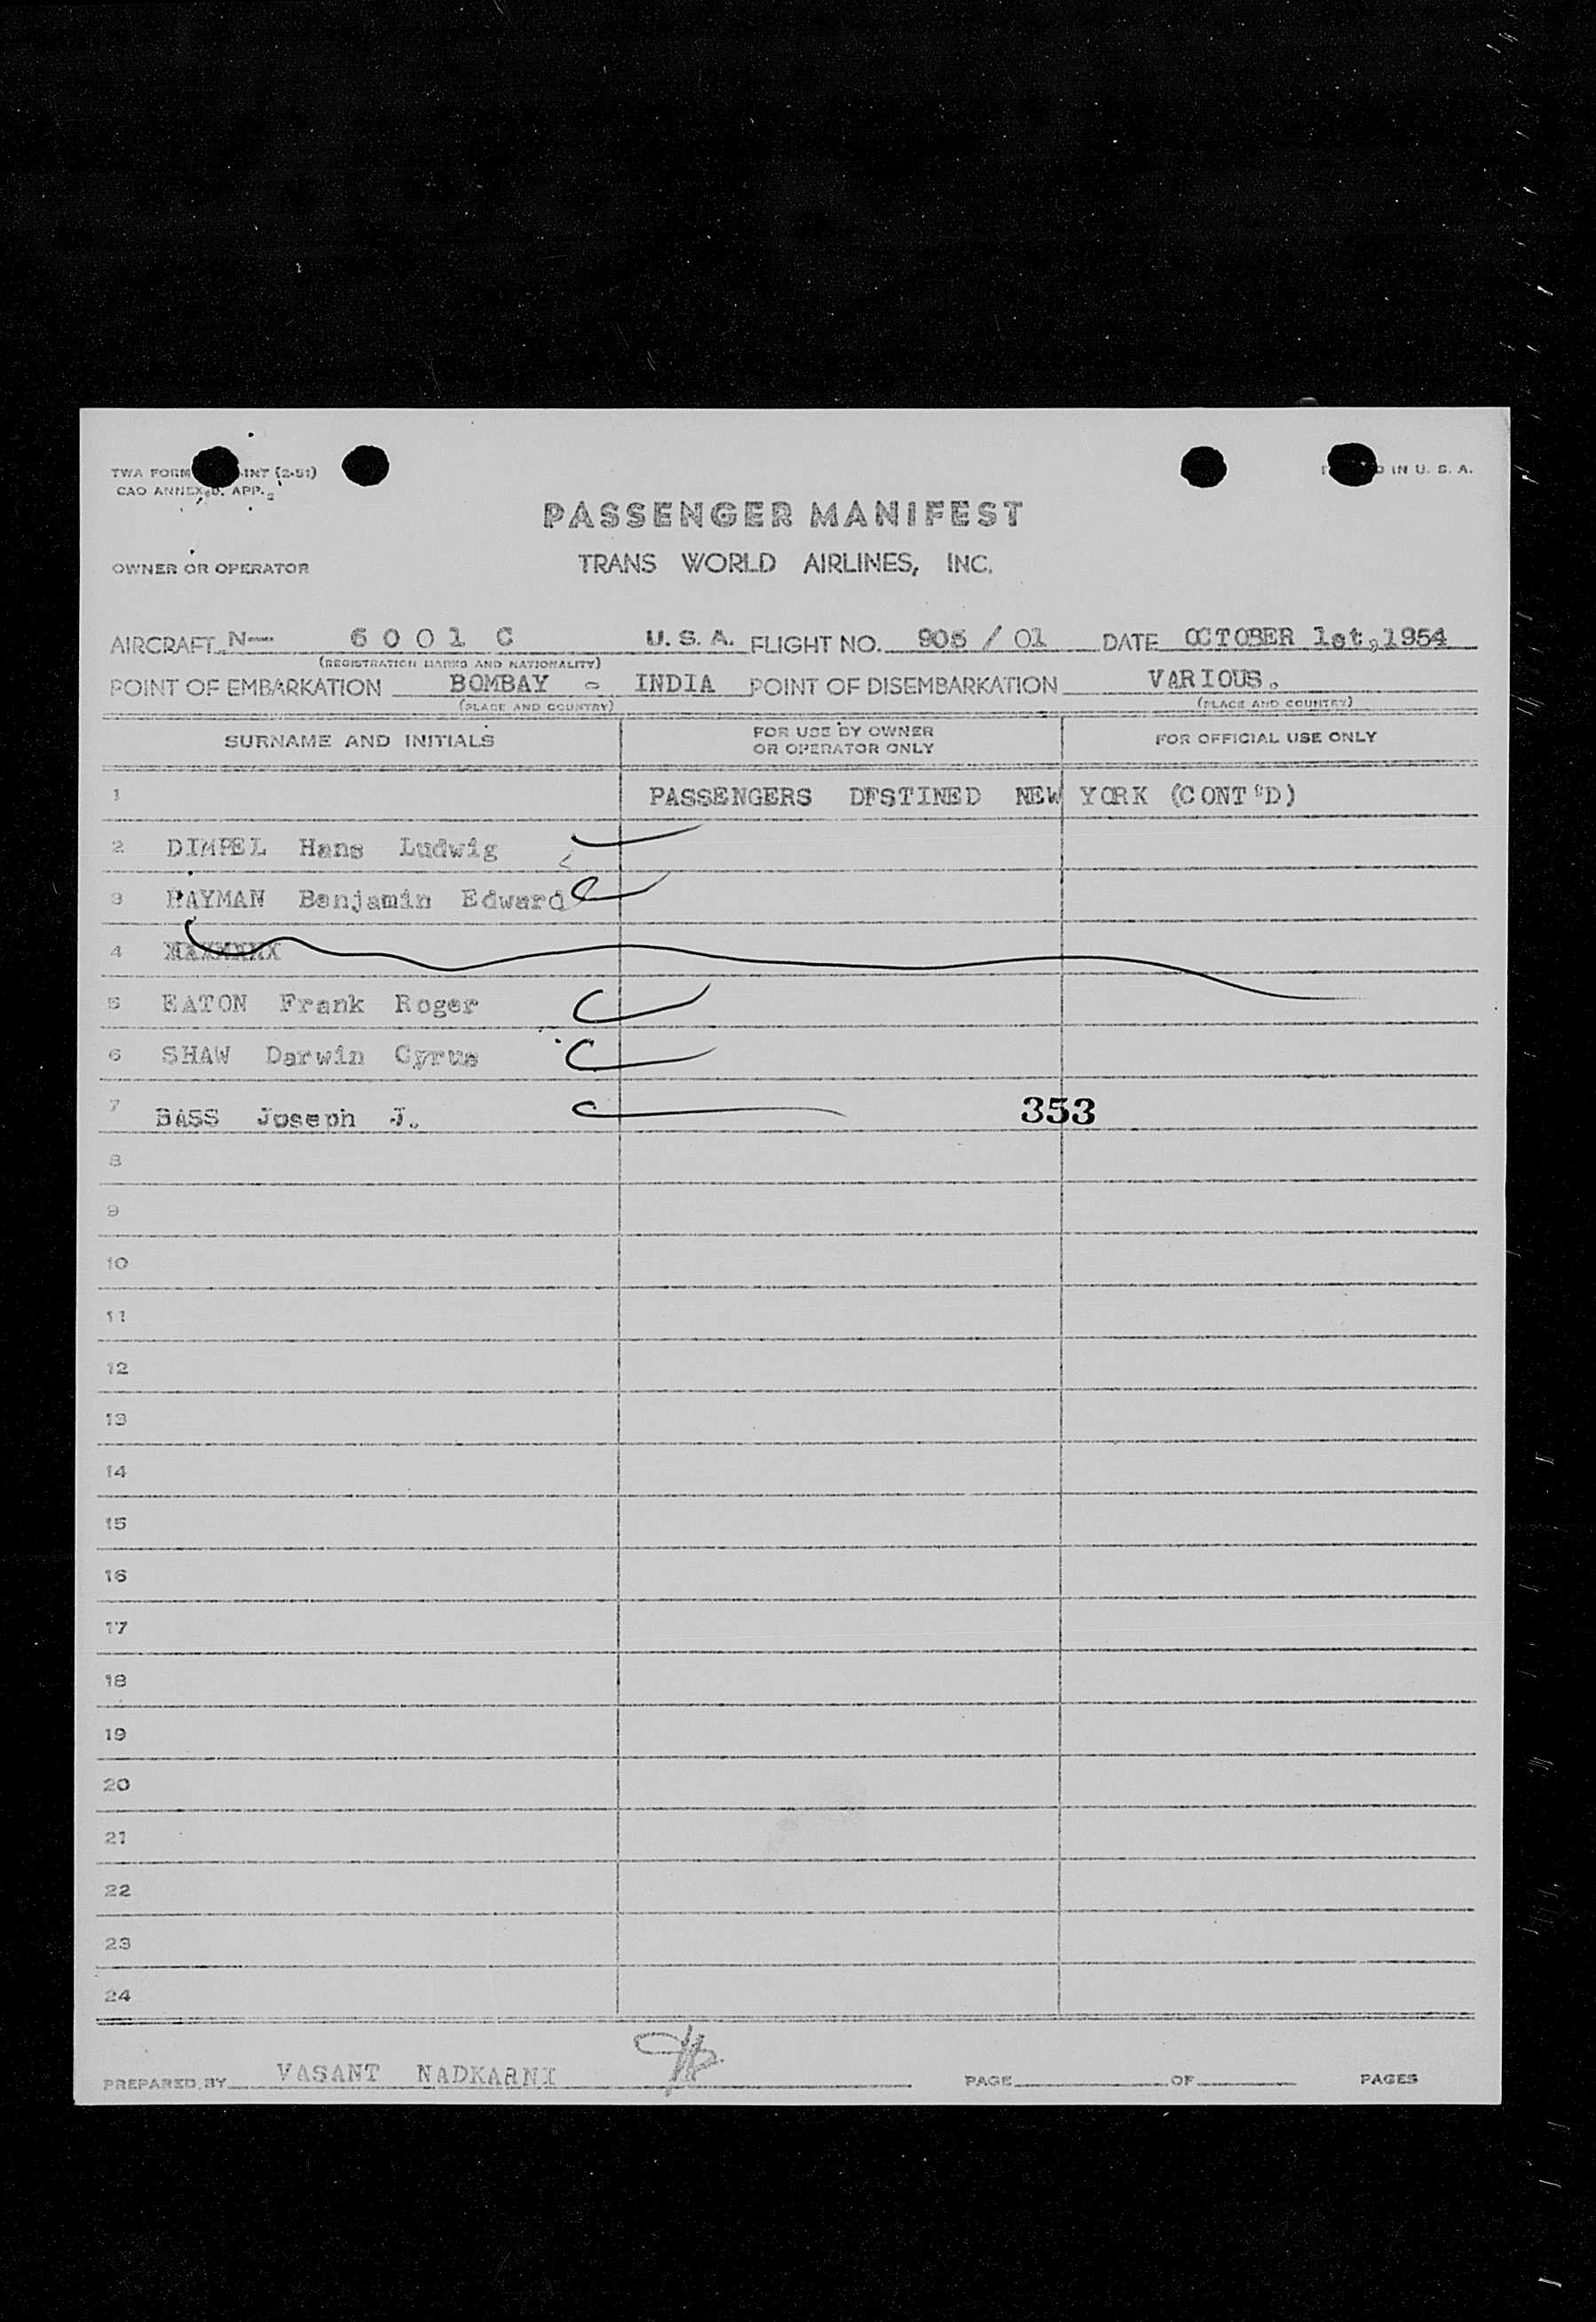 TWA FORM INT (2-51)
CAO ANNEX D. APP.
IN U. S. A.
PASSENGER MANIFEST
OWNER OR OPERATOR TRANS WORLD AIRLINES, INC.
AIRCRAFT N— 6 0 0 1 C U. S. A. FLIGHT NO. 905 / 01 DATE OCTOBER 1st,1954
(REGISTRATION MARKS AND NATIONALITY)
POINT OF EMBARKATION BOMBAY - INDIA POINT OF DISEMBARKATION VARIOUS.
(PLACE AND COUNTRY) (PLACE AND COUNTRY)
SURNAME AND INITIALS FOR USE BY OWNER OR OPERATOR ONLY FOR OFFICIAL USE ONLY
1 PASSENGERS DESTINED NEW YORK (CONT'D)
2 DIMPEL Hans Ludwig
3 RAYMAN Benjamin Edward
4
5 EATON Frank Roger
6 SHAW Darwin Cyrus
7 BASS Joseph J. 353
8
9
10
11
12
13
14
15
16
17
18
19
20
21
22
23
24
PREPARED BY VASANT NADKARNI PAGE OF PAGES